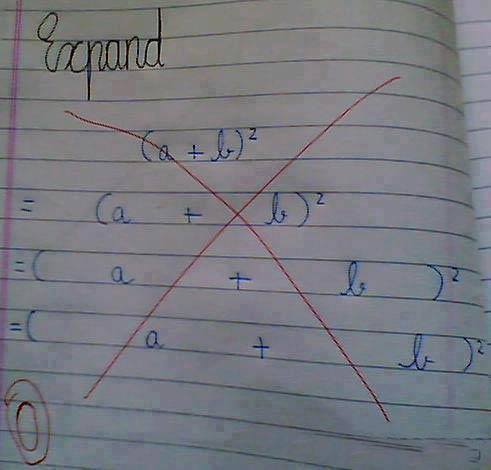 Expand
(a + b)²
= (a + b)²
=( a + b )²
=( a + b )²
0